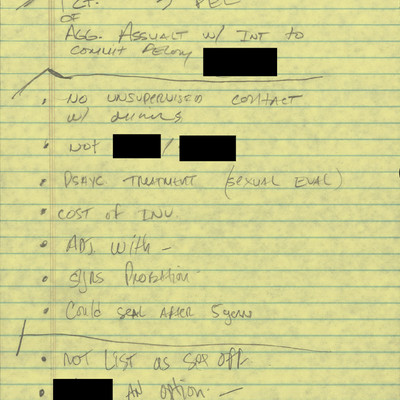 1 CT. → FEL
OF
AGG. ASSUALT W/ INT to
COMMIT FELONY
• NO UNSUPERVISED CONTACT
w/ minors
• NOT /
• PSAYC TREATMENT (SEXUAL EVAL)
• COST OF INV.
• ADJ. WITH –
• 5yrs PROBATION
• COULD SEAL AFTER 5 years
• NOT LIST AS SEX OFF.
• AN OPTION. –